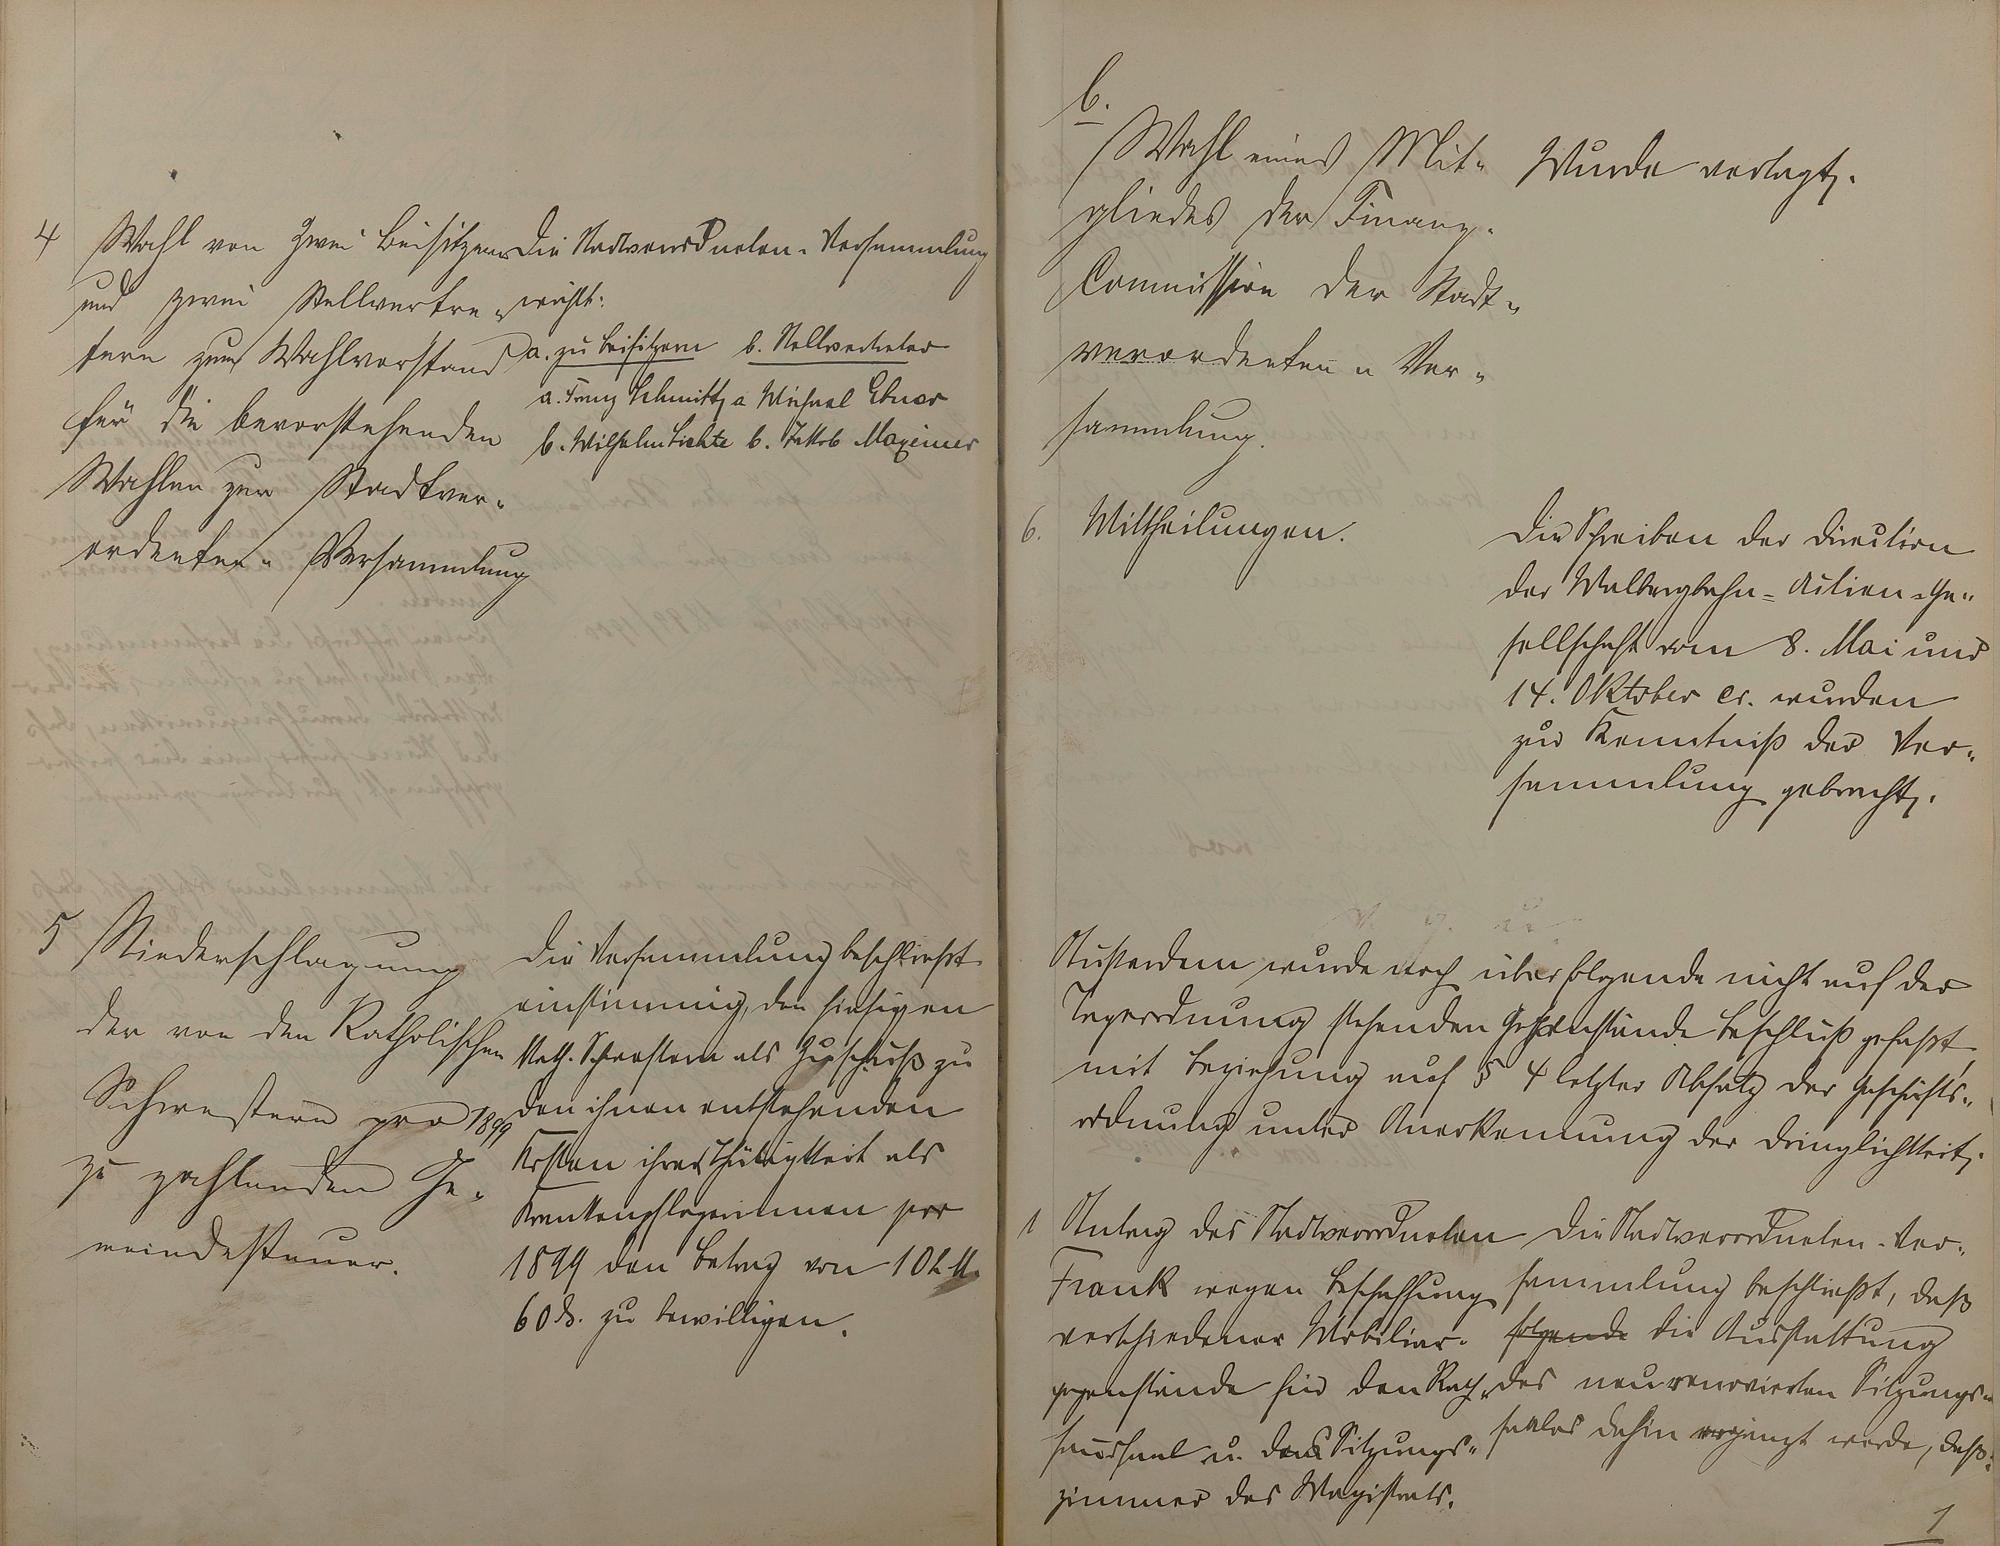 4 Wahl von zwei Beisitzern
und zwei Stellvertre-
tern zum Wahlvorstand
für die bevorstehenden
Wahlen zur Stadtver-
ordneten- Versammlung
Die Stadtverordneten-Versammlung
wählt:
a. zu Beisitzern b. Stellvertreter
a. Franz Schmitt, a Michael Ebner
b. Wilhelm b. Jakob Maximer
5 Niederschlagung
der von den Katholischen
Schwestern pro 1899
zu zahlenden Ge-
meindesteuer.
Die Versammlung beschließt
einstimmig, den hiesigen
kath. Schwestern als Zuschuß zu
den ihnen entstehenden
Kosten ihrer Thätigkeit als
Krankenpflegerinnen pro
1899 den Betrag von 102 M.
60 d. zu bewilligen.
b.
Wahl eines Mit-
gliedes der Finanz-
Commission der Stadt-
verordenten - Ver-
sammlung.
Wurde vertagt.
6. Mittheilungen.
Die Schreiben der Direction
der Walbergbahn-Actien-Ge-
sellschaft vom 8. Mai und
14. Oktober cr. wurden
zur Kenntniß der Ver-
sammlung gebracht.
Außerdem wurde noch über folgende nicht auf der
Tagesordnung stehenden Gegenstände Beschluß gefaßt,
mit Beziehung auf § 4 letzter Absatz der Geschäfts-
ordnung unter Anerkennung der Dringlichkeit.
1 Antrag des Stadtverordneten
Frank wegen Beschaffung
verschiedener Mobiliar-
gegenstände für den Rath-
haussaal u. das Sitzungs-
zimmer des Magistrats.
Die Stadtverordneten-Ver-
sammlung beschließt, daß
folgende die Ausstattung
des neurenovierten Sitzungs-
saales dahin ergänzt werde, daß:
1